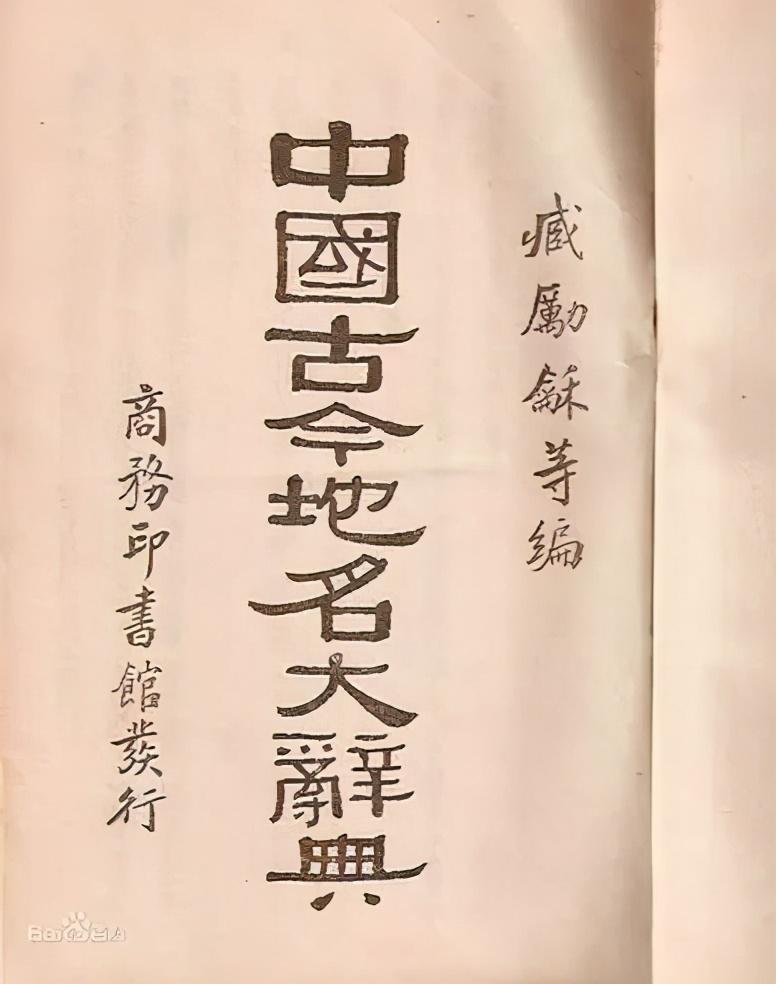 臧勵龢等編
中國古今地名大辭典
商務印書館發行
Bai百科